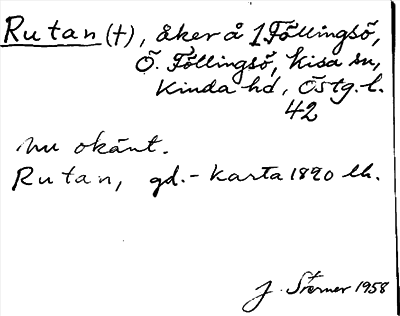 Rutan (†), åker å 1 Föllingsö,
Ö. Föllingsö, Kisa sn,
Kinda hd, Östg. l.
42
nu okänt.
Rutan, gd. - karta 1890 lh.
J. Stermer 1958